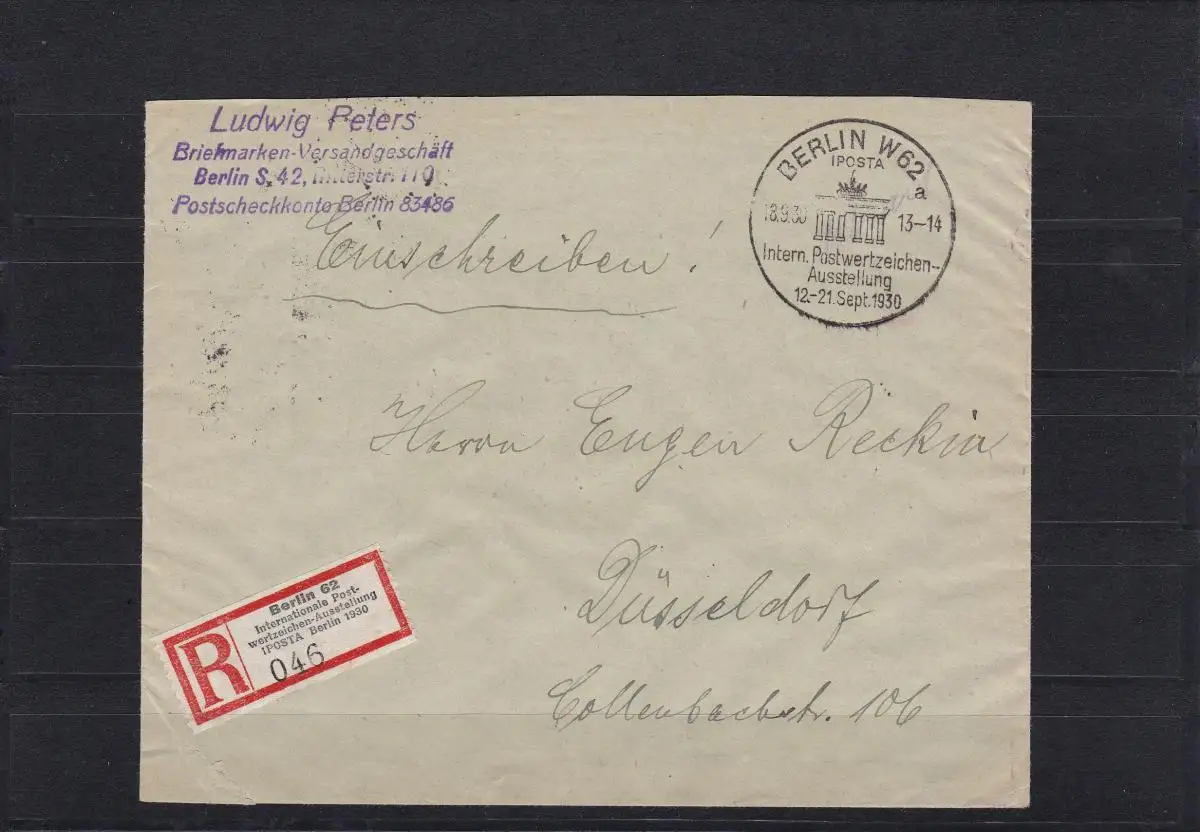 Ludwig Peters
Briefmarken-Versandgeschäft
Berlin S. 42, Ritterstr. 110
Postscheckkonto Berlin 83486
Einschreiben!
BERLIN W62
IPOSTA
a
18.9.30 13-14
Intern. Postwertzeichen-
Ausstellung
12.-21. Sept. 1930
Herrn Eugen Reckin
Düsseldorf
Collenbachstr. 106
R
Berlin 62
Internationale Post-
wertzeichen-Ausstellung
IPOSTA Berlin 1930
046